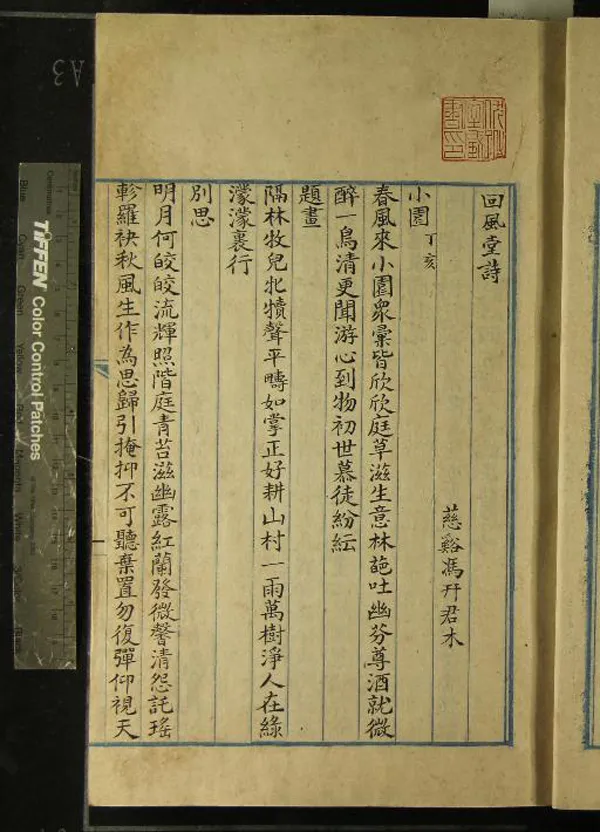 伏跗室藏書印
回風堂詩
慈谿馮幵君木
小園 丁亥
春風來小園眾彙皆欣欣庭草滋生意林葩吐幽芬尊酒就微
醉一鳥清更聞游心到物初世慕徒紛紜
題畫
隔林牧兒牝犢聲平疇如掌正好耕山村一雨萬樹淨人在綠
濛濛裏行
別思
明月何皎皎流輝照階庭青苔滋幽露紅蘭發微馨清怨託瑤
軫羅袂秋風生作為思歸引掩抑不可聽棄置勿復彈仰視天
A3
TIFFEN Color Control Patches
Blue Cyan Green Yellow Red Magenta White